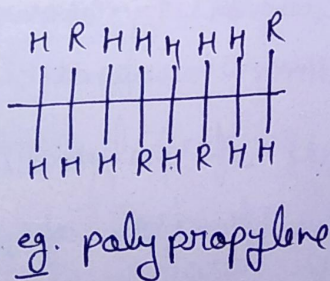 H R H H H H H R
H H H R H R H H
eg. polypropylene